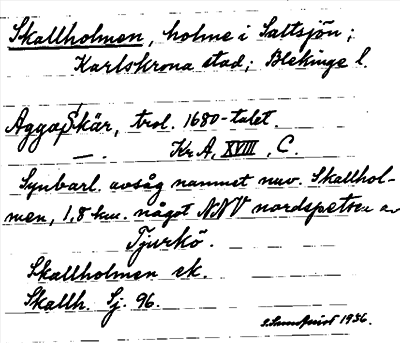 Skallholmen, holme i Saltsjön;
Karlskrona stad; Blekinge l.
Aggaskär, trol. 1680-talet.
— . Kr A, XVIII, C.
Synbarl. avsåg namnet nuv. Skallhol-
men, 1,8 km. något NNV nordspetsen av
Tjurkö.
Skallholmen ek.
Skallh. Sj. 96.
1936.